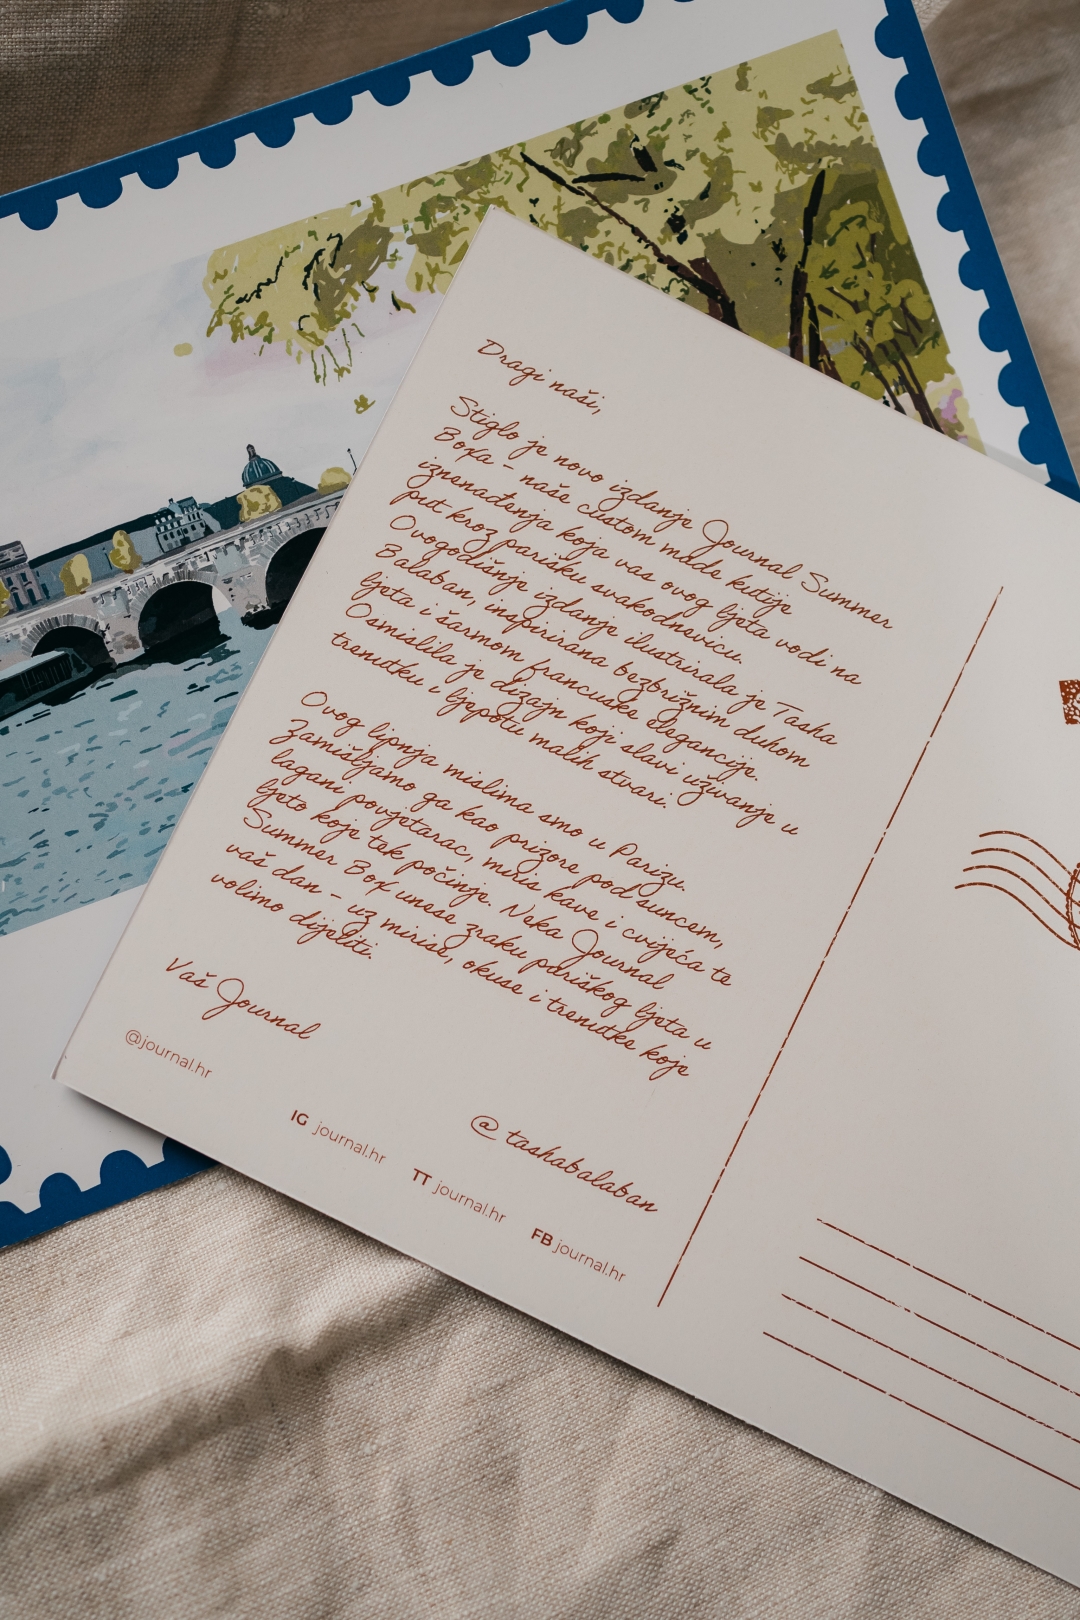 Dragi naši,
Stiglo je novo izdanje Journal Summer
Boxa – naše custom made kutije
iznenađenja koja vas ovog ljeta vodi na
put kroz parišku svakodnevicu.
Ovogodišnje izdanje ilustrirala je Tasha
Balaban, inspirirana bezbrižnim duhom
ljeta i šarmom francuske elegancije.
Osmislila je dizajn koji slavi uživanje u
trenutku i ljepotu malih stvari.
Ovog lipnja mislima smo u Parizu.
Zamišljamo ga kao prizore pod suncem,
lagani povjetarac, miris kave i cvijeća te
ljeto koje tek počinje. Neka Journal
Summer Box unese zraku pariškog ljeta u
vaš dan – uz mirise, okuse i trenutke koje
volimo dijeliti.
Vaš Journal
@journal.hr
@tashabalaban
IG journal.hr
TT journal.hr
FB journal.hr